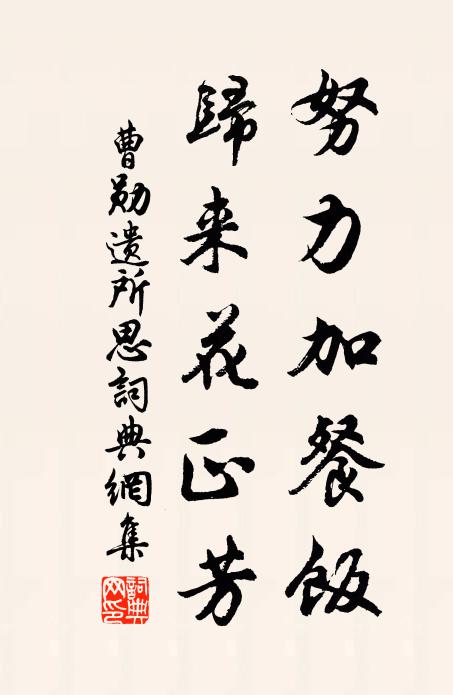 努力加餐飯
歸来花正芳
曹勛遺所思詞典網集
詞典网印